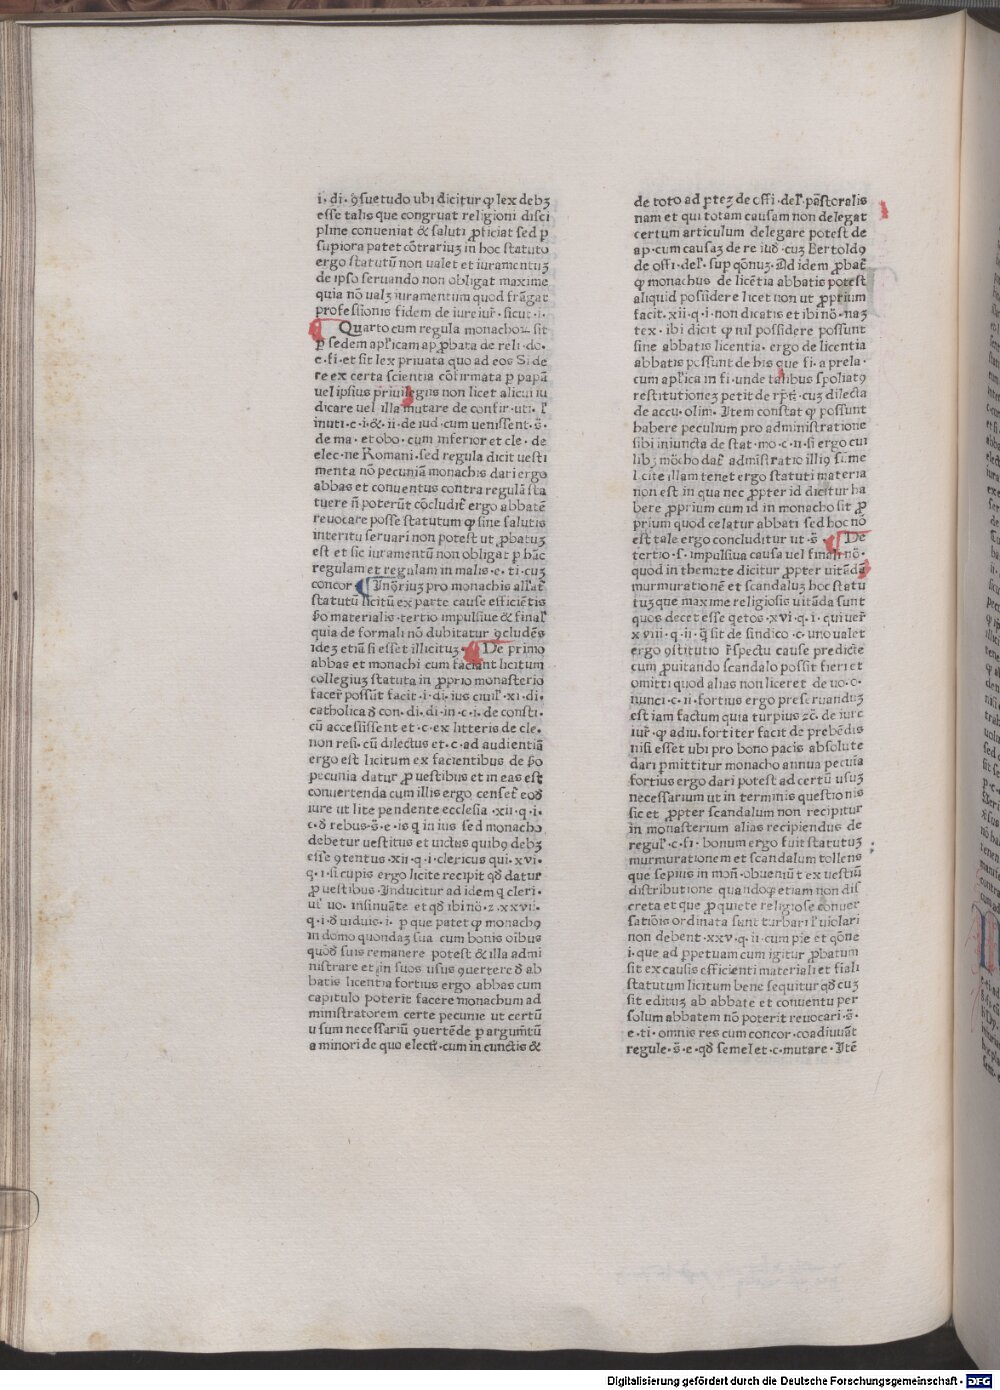 i· di· ꝯsuetudo ubi dicitur ꝙ lex debꝫ
esse talis que congruat religioni disci
pline conueniat & saluti ꝓficiat sed ꝑ
supiora patet cōtrariuꝫ in hoc statuto
ergo statutū non ualet et iuramentuꝫ
de ipso seruando non obligat maxime
quia nō ualꝫ iuramentum quod frāgat
professionis fidem de iureiur̄· sicut·i·
Quarto cum regula monachoꝝ sit
ꝑ sedem apl̄icam apꝓbata de reli·do·
c·fi·et sit lex priuata quo ad eos Si de
re ex certa scientia cōfirmata ꝑ papā
uel ipsius priuilegiis non licet alicui iu
dicare uel illa mutare de confir·uti·l̄
inuti·c·i·&·ii·de iud·cum uenissent·s̄·
de ma·et obo·cum inferior et cle·de
elec·ne Romani·sed regula dicit uesti
menta nō pecuniā monachis dari ergo
abbas et conuentus contra regulā sta
tuere n̄ poterūt cōcludit̄ ergo abbatē
reuocare posse statutum ꝙ sine salutis
interitu seruari non potest ut ꝓbatuꝫ
est et sic iuramentū non obligat ꝑ hāc
regulam et regulam in malis·e·ti·cuꝫ
concor· In ꝯ̄rius pro monachis allat̄
statutū licitū ex parte cause efficiētis
ẜo materialis·tertio impulsiue & final̄
quia de formali nō dubitatur ꝯcludēs
ideꝫ etiā si esset illicituꝫ· De primo
abbas et monachi cum faciant licitum
collegiuꝫ statuta in ꝓprio monasterio
facer̄ possūt facit·i·di·ius ciuil̄·xi·di·
catholica ꝺ con·di·di·in·c·i·de consti·
cū accessissent et·c·ex litteris de cle·
non resi·cū dilectus et·c·ad audientiā
ergo est licitum ex facientibus de ẜo
pecunia datur ꝓ uestibus et in eas est
conuertenda cum illis ergo censet̄ eoꝺ
iure ut lite pendente ecclesia·xii·q·i·
c·ꝺ rebus·s̄·e·is q̄ in ius sed monacho
debetur uestitus et uictus quibꝯ debꝫ
esse ꝯtentus·xii·q·i·clericus qui·xvi·
q·i·si cupis ergo licite recipit qd̄ datur
ꝓ uestibus·Inducitur ad idem q̄ cleri·
ul̄ uo·insinuāte et qd̄ ibi nō·2·xxvii·
q·i·ꝺ uiduis·i·ꝑ que patet ꝙ monachꝯ
in domo quondaꝫ sua cum bonis oībus
quōꝺ suis remanere potest & illa admi
nistrare et in suos usus ꝯuertere ꝺ ab
batis licentia fortius ergo abbas cum
capitulo poterit facere monachum ad
ministratorem certe pecunie ut certū
usum necessariū ꝯuertēde ꝑ argum̄tū
a minori de quo elect̄·cum in cunctis &
de toto ad ꝑteꝫ de offi·del̄·pāstoralis
nam et qui totam causam non delegat
certum articulum delegare potest de
ap·cum causaꝫ de re iuꝺ·cuꝫ Bertoldꝯ
de offi·del̄·sup q̄onuꝫ·Ad idem ꝓbat̄
ꝙ monachus de licētia abbatis potest
aliquid possidere licet non ut ꝓprium
facit·xii·q·i·non dicatis et ibi nō·naꝫ
tex·ibi dicit ꝙ nil possidere possunt
sine abbatis licentia·ergo de licentia
abbatis possunt de his que fi·a prela·
cum apl̄ica in fi·unde talibus spoliatꝯ
restitutioneꝫ petit de rp̄ti·cuꝫ dilecta
de accu·olim·Item constat ꝙ possunt
habere peculium pro administratione
sibi iniuncta de stat·mo·c·ii·si ergo cui
libꝫ mōcho dat̄ admīstratio illiꝯ sūme
l cite illam tenet ergo statuti materia
non est in qua nec ꝓpter id dicitur ha
bere ꝓprium cum id in monacho sit ꝓ
prium quod celatur abbati sed hoc nō
est tale ergo concluditur ut·s̄· De
tertio·s·impulsiua causa uel finali nō·
quod in themate dicitur ꝓpter uitādā
murmurationē et scandaluꝫ hoc statu
tuꝫ que maxime religiosis uitāda sunt
quos decet esse q̄etos·xvi·q·i·qui uer̄
xviii·q·ii·q̄ sit de sindico·c·uno ualet
ergo ꝯstitutio r̄spectu cause predicte
cum ꝓ uitando scandalo possit fieri et
omitti quod alias non liceret de uo·c·
nunci·c·ii·fortius ergo preseruanduꝫ
est iam factum quia turpius ⁊c̄·de iure
iur̄·ꝙ adiu·fortiter facit de prebēdis
nisi esset ubi pro bono pacis absolute
dari ꝑmittitur monacho annua pecūia
fortius ergo dari potest ad certū usuꝫ
necessarium ut in terminis questionis
sic et ꝓpter scandalum non recipitur
in monasterium alias recipiendus de
regul̄·c·fi·bonum ergo fuit statutuꝫ
murmurationem et scandalum tollens
que sepius in mon̄·obueniūt ex uestiū
distributione quandoqꝫ etiam non dis
creta et que ꝓ quiete religiose conuer
sationis ordinata sunt turbari l̄ uiolari
non debent·xxv·q·ii·cum pie et q̄one
i·que ad ꝑpetuam cum igitur ꝓbatum
sit ex causis efficienti materiali et fiali
statutum licitum bene sequitur qd̄ cuꝫ
sit edituꝫ ab abbate et conuentu per
solum abbatem nō poterit reuocari·s̄·
e·ti·omnis res cum concor·coadiuuāt
regule·s̄·e·qd̄ semel et·c·mutare·Itē
Digitalisierung gefördert durch die Deutsche Forschungsgemeinschaft - DFG